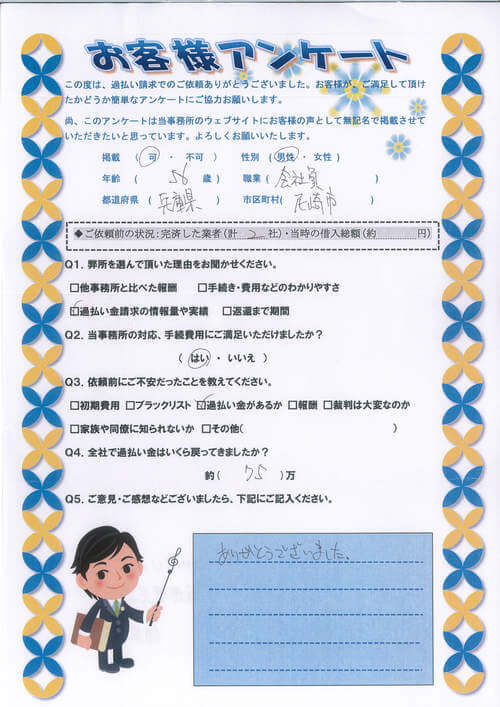 お客様アンケート
この度は、過払い請求でのご依頼ありがとうございました。お客様が、ご満足して頂け
たかどうか簡単なアンケートにご協力お願いします。
尚、このアンケートは当事務所のウェブサイトにお客様の声として無記名で掲載させて
いただきたいと思っています。よろしくお願いいたします。
掲載 ( 可 ・ 不可 ) 性別 ( 男性 ・ 女性 )
年齢 ( 56 歳 ) 職業 ( 会社員 )
都道府県 ( 兵庫県 ) 市区町村( 尼崎市 )
◆ご依頼前の状況:完済した業者(計 2 社)・当時の借入総額(約 円)
Q1. 弊所を選んで頂いた理由をお聞かせください。
□他事務所と比べた報酬 □手続き・費用などのわかりやすさ
☑過払い金請求の情報量や実績 □返還まで期間
Q2. 当事務所の対応、手続費用にご満足いただけましたか?
( はい ・ いいえ )
Q3. 依頼前にご不安だったことを教えてください。
□初期費用 □ブラックリスト ☑過払い金があるか □報酬 □裁判は大変なのか
□家族や同僚に知られないか □その他( )
Q4. 全社で過払い金はいくら戻ってきましたか?
約 ( 75 )万
Q5. ご意見・ご感想などございましたら、下記にご記入ください。
ありがとうございました、